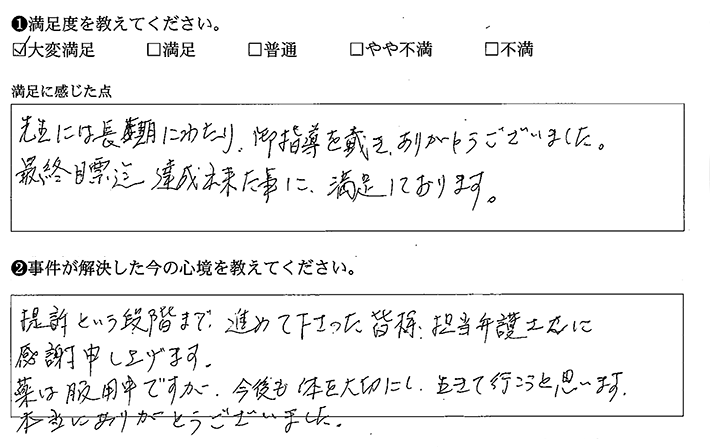 ❶満足度を教えてください。
☑大変満足 □満足 □普通 □やや不満 □不満
満足に感じた点
先生には長期にわたり、御指導を戴き、ありがとうございました。
最終目標迄 達成出来た事に、満足しております。
❷事件が解決した今の心境を教えてください。
提訴という段階まで 進めて下さった皆様、担当弁護士に
感謝申し上げます。
薬は服用中ですが、今後も体を大切にし、生きて行こうと思います。
本当にありがとうございました。